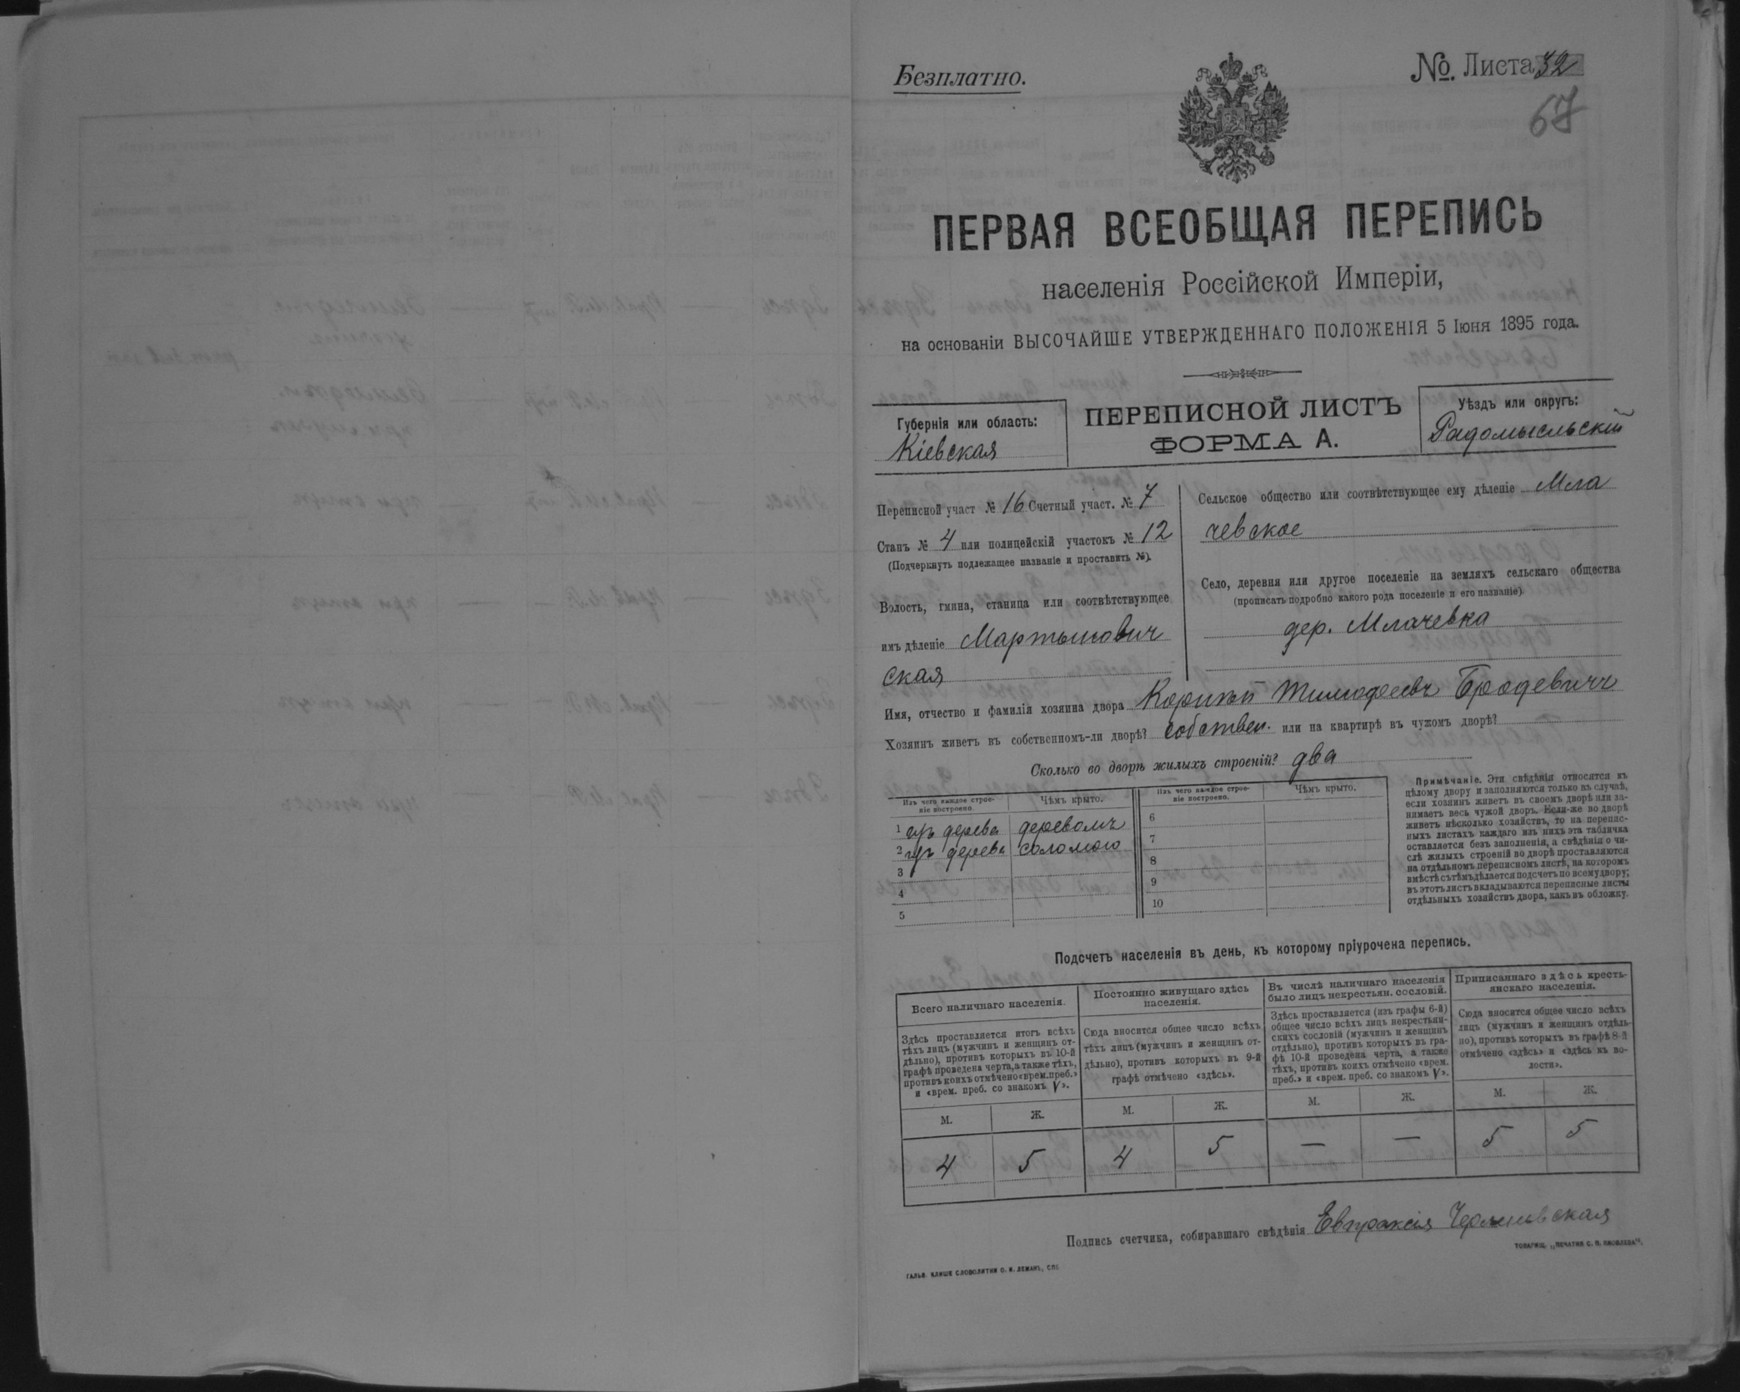 Безплатно.
№. Листа 32
67
ПЕРВАЯ ВСЕОБЩАЯ ПЕРЕПИСЬ
населенія Россійской Имперіи,
на основаніи ВЫСОЧАЙШЕ УТВЕРЖДЕННАГО ПОЛОЖЕНІЯ 5 Іюня 1895 года.
Губернія или область:
Кіевская
ПЕРЕПИСНОЙ ЛИСТЪ
ФОРМА А.
Уѣздъ или округъ:
Радомысльскій
Переписной участ № 16 Счетный участ. № 7
Станъ № 4 или полицейскій участокъ № 12
(Подчеркнуть подлежащее названіе и проставить №).
Волость, гмина, станица или соотвѣтствующее
имъ дѣленіе Мартынович
ская
Сельское общество или соотвѣтствующее ему дѣленіе Мла
чевское
Село, деревня или другое поселеніе на земляхъ сельскаго общества
(прописать подробно какого рода поселеніе и его названіе)
дер. Млачевка
Имя, отчество и фамилія хозяина двора Тимофеевъ Бродевичъ
Хозяинъ живетъ въ собственномъ-ли дворѣ? собствен. или на квартирѣ въ чужомъ дворѣ?
Сколько во дворѣ жилыхъ строеній? два
Изъ чего каждое строе-
ніе построено.
Чѣмъ крыто.
Изъ чего каждое строе-
ніе построено.
Чѣмъ крыто.
1 изъ дерева деревомъ
2 изъ дерева соломою
3
4
5
6
7
8
9
10
Примѣчаніе. Эти свѣдѣнія относятся къ
цѣлому двору и заполняются только въ случаѣ,
если хозяинъ живетъ въ своемъ дворѣ или за-
нимаетъ весь чужой дворъ. Если-же во дворѣ
живетъ нѣсколько хозяйствъ, то на перепис-
ныхъ листахъ каждаго изъ нихъ эта табличка
оставляется безъ заполненія, а свѣдѣнія о чи-
слѣ жилыхъ строеній во дворѣ проставляются
на отдѣльномъ переписномъ листѣ, на которомъ
вмѣстѣ съ тѣмъ дѣлается подсчетъ по всему двору;
въ этотъ листъ вкладываются переписные листы
отдѣльныхъ хозяйствъ двора, какъ въ обложку.
Подсчетъ населенія въ день, къ которому пріурочена перепись.
Всего наличнаго населенія.
Постоянно живущаго здѣсь
населенія.
Въ числѣ наличнаго населенія
было лицъ некрестьян. сословій.
Приписаннаго здѣсь кресть-
янскаго населенія.
Здѣсь проставляется итогъ всѣхъ
тѣхъ лицъ (мужчинъ и женщинъ от-
дѣльно), противъ которыхъ въ 10-й
графѣ проведена черта, а также тѣхъ,
противъ коихъ отмѣчено «врем. преб.»
и «врем. преб. со знакомъ V».
Сюда вносится общее число всѣхъ
тѣхъ лицъ (мужчинъ и женщинъ от-
дѣльно), противъ которыхъ въ 9-й
графѣ отмѣчено «здѣсь».
Здѣсь проставляется (изъ графы 6-й)
общее число всѣхъ лицъ некрестьян-
скихъ сословій (мужчинъ и женщинъ
отдѣльно), противъ которыхъ въ гра-
фѣ 10-й проведена черта, а также
тѣхъ, противъ коихъ отмѣчено «врем.
преб.» и «врем. преб. со знакомъ V».
Сюда вносится общее число всѣхъ
лицъ (мужчинъ и женщинъ отдѣль-
но), противъ которыхъ въ графѣ 8-й
отмѣчено «здѣсь» и «здѣсь въ во-
лости».
М. Ж. М. Ж. М. Ж. М. Ж.
4 5 4 5 — — 5 5
Подпись счетчика, собиравшаго свѣдѣнія Евпраксія
ТОВАРИЩ. „ПЕЧАТНЯ С. П. ЯКОВЛЕВА".
ГАЛЬВ. КЛИШЕ СЛОВОЛИТНИ О. И. ЛЕМАНЪ, СПБ